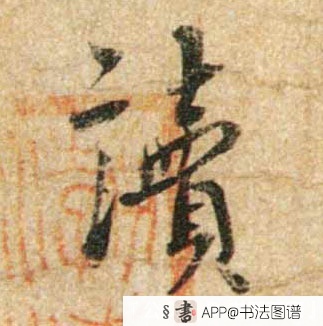 讀
§書 APP@书法图谱